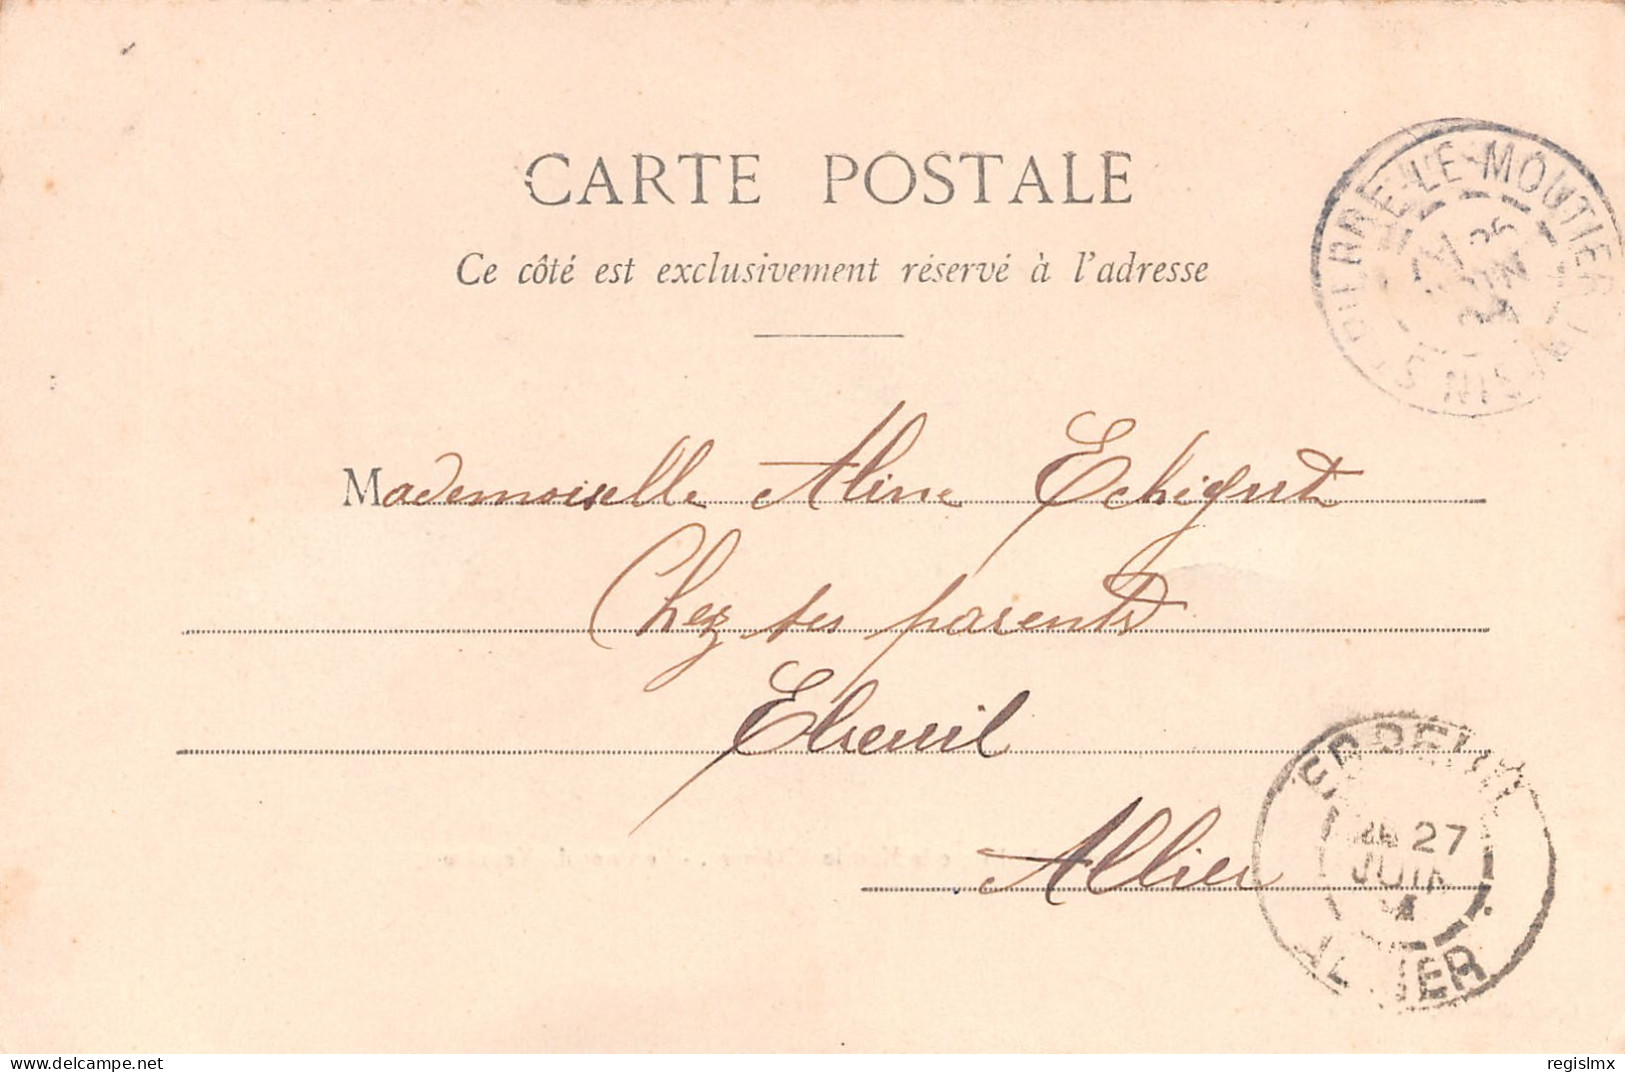 CARTE POSTALE
Ce côté est exclusivement réservé à l'adresse
PIERRE-LE-MOUTIER
26
JUIN
04
Mademoiselle Aline Echigut
Chez ses parents
Ebreuil
Allier
EBREUIL
27
JUIN
ALLIER
regislmx